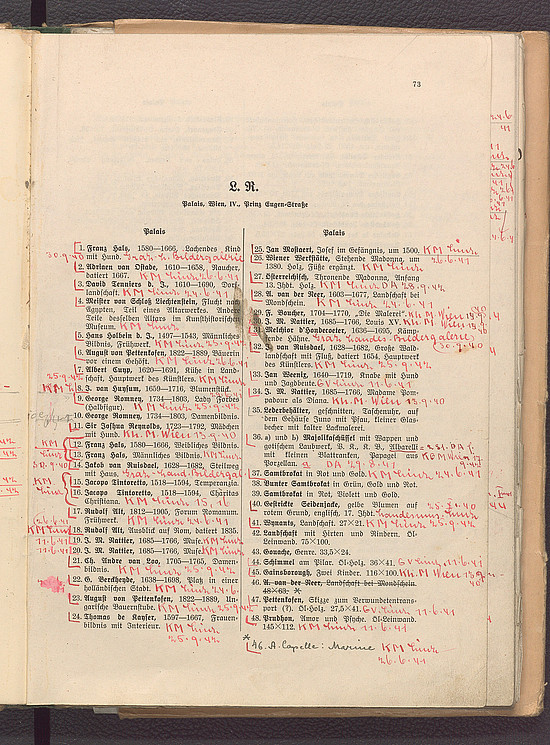 73
L. R.
Palais, Wien, IV., Prinz Eugen-Straße
Palais
1. Franz Hals, 1580—1666, Lachendes Kind
mit Hund. Graz, L. Bildergalerie
30.9.40
2. Adriaen van Ostade, 1610—1658, Raucher,
datiert 1667. KM Linz 26.6.41
3. David Teniers d. J., 1610—1690, Dorf-
landschaft. KM Linz 24.6.41
4. Meister von Schloß Liechtenstein, Flucht nach
Ägypten, Teil eines Altarwerkes. Andere
Teile desselben Altars im Kunsthistorischen
Museum. KM Linz
5. Hans Holbein d. J., 1497—1543, Männliches
Bildnis, Frühwerk. KM Linz 25.9.42
6. August von Pettenkofen, 1822—1889, Bäuerin
vor einem Gehöft. KM Linz 26.6.41
7. Albert Cuyp, 1620—1691, Kühe in Land-
schaft, Hauptwerk des Künstlers. KM Linz
25.9.42
KM Linz 8. J. van Huysum, 1650—1716, Blumenstück.
9. George Romney, 1734—1803, Lady Forbes
(Halbfigur). KM Linz 25.9.42
10. George Romney, 1734—1803, Damenbildnis.
11. Sir Joshua Reynolds, 1723—1792, Mädchen
mit Hund. Kh. M. Wien 13.9.40
KM 12. Franz Hals, 1580—1666, Weibliches Bildnis.
Linz 13. Franz Hals, Männliches Bildnis. KM Linz
14. Jakob van Ruisdael, 1628—1682, Steilweg
mit Haus. Graz, Land. Bildergal.
30.9.40
KM 15. Jacopo Tintoretto, 1518—1594, Temperanzia.
Linz 16. Jacopo Tintoretto, 1518—1594, Charitas
Christiana. KM Linz 15, 16
17. Rudolf Alt, 1812—1905, Forum Romanum.
Frühwerk. KM Linz 24.6.41
26.6.41
KM Linz 18. Rudolf Alt, Ausblick auf Rom, datiert 1835.
11.6.41 19. J. M. Nattier, 1685—1766, Muse. KM Linz
11.6.41 20. J. M. Nattier, 1685—1766, Muse. KM Linz
21. Ch. Andre van Loo, 1705—1765, Damen-
bildnis. KM Linz 25.9.42
22. G. Berckheyde, 1638—1698, Platz in einer
holländischen Stadt. KM Linz 24.6.
23. August von Pettenkofen, 1822—1889, Un-
garische Bauernstube. KM Linz 25.9.42
24. Thomas de Kayser, 1597—1667, Frauen-
bildnis mit Interieur. KM Linz
25.9.42
Palais
25. Jan Mostaert, Josef im Gefängnis, um 1500. KM Linz
26.6.41
26. Wiener Werkstätte, Stehende Madonna, um
1380. Holz. Füße ergänzt. KM Linz
27. Österreichisch, Thronende Madonna, Anfang
13. Jhdt. Holz. KM Linz DA 28.9.42
28. A. van der Neer, 1603—1677, Landschaft bei
Mondschein. KM Linz 24.6.41
29. F. Boucher, 1704—1770, „Die Malerei". Kh. M. Wien 13.9.40
30. J. M. Nattier, 1685—1766, Louis XV. Kh. M. Wien 13.9.40
31. Melchior d'Hondecoeter, 1636—1695, Kämp-
fende Hähne. Graz Landes-Bildergalerie
30.9.40
32. J. van Ruisdael, 1628—1682, Große Wald-
landschaft mit Fluß, datiert 1654. Hauptwerk
des Künstlers. KM Linz 25.9.42
33. Jan Weenix, 1640—1719, Knabe mit Hund
und Jagdbeute. GV Linz 11.6.41
34. J. M. Nattier, 1685—1766, Madame Pom-
padour als Diana. Kh. M. Wien 13.9.40
35. Lederbehälter, geschnitten, Taschenuhr, auf
dem Gehäuse Zunft der Maler, kleiner Glas-
becher mit kalter Lackmalerei.
36. a) und b) Majolikaschüssel mit Wappen und
gotischem Laubwerk, V. B., R. B., Albarelli
mit kleinen Blattranken, Papagei aus
Porzellan. a DA 29.8.41
37. Samtbrokat in Rot und Gold. KM Linz 24.6.41
38. Bunter Samtbrokat in Grün, Gold und Rot.
39. Samtbrokat in Rot, Violett und Gold.
40. Gestickte Seidenjacke, gelbe Blumen auf
rotem Grund, englisch, 17. Jhdt.
41. Wynants, Landschaft. 27×21. KM Linz 25.9.42
42. Landschaft mit Hirten und Rindern. Öl-
Leinwand. 75×100.
43. Gouache, Genre. 33,5×24.
44. Schimmel am Pilar. Öl-Holz. 36×41. GV Linz 11.6.41
45. Gainsborough, Zwei Kinder. 116×100. Kh. M. Wien 13.9.40
46. A. van der Neer, Landschaft bei Mondschein.
48×63. *
47. Pettenkofen, Skizze zum Verwundetentrans-
port (?). Öl-Holz. 27,5×41. GV Linz 11.6.41
48. Prudhon, Amor und Psyche. Öl-Leinwand.
145×112. KM Linz 11.6.41
* 46. A. Capelle: Marine KM Linz
26.6.41